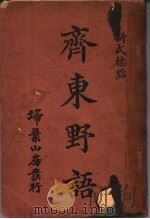 新式標點
齊東野語
掃葉山房發行